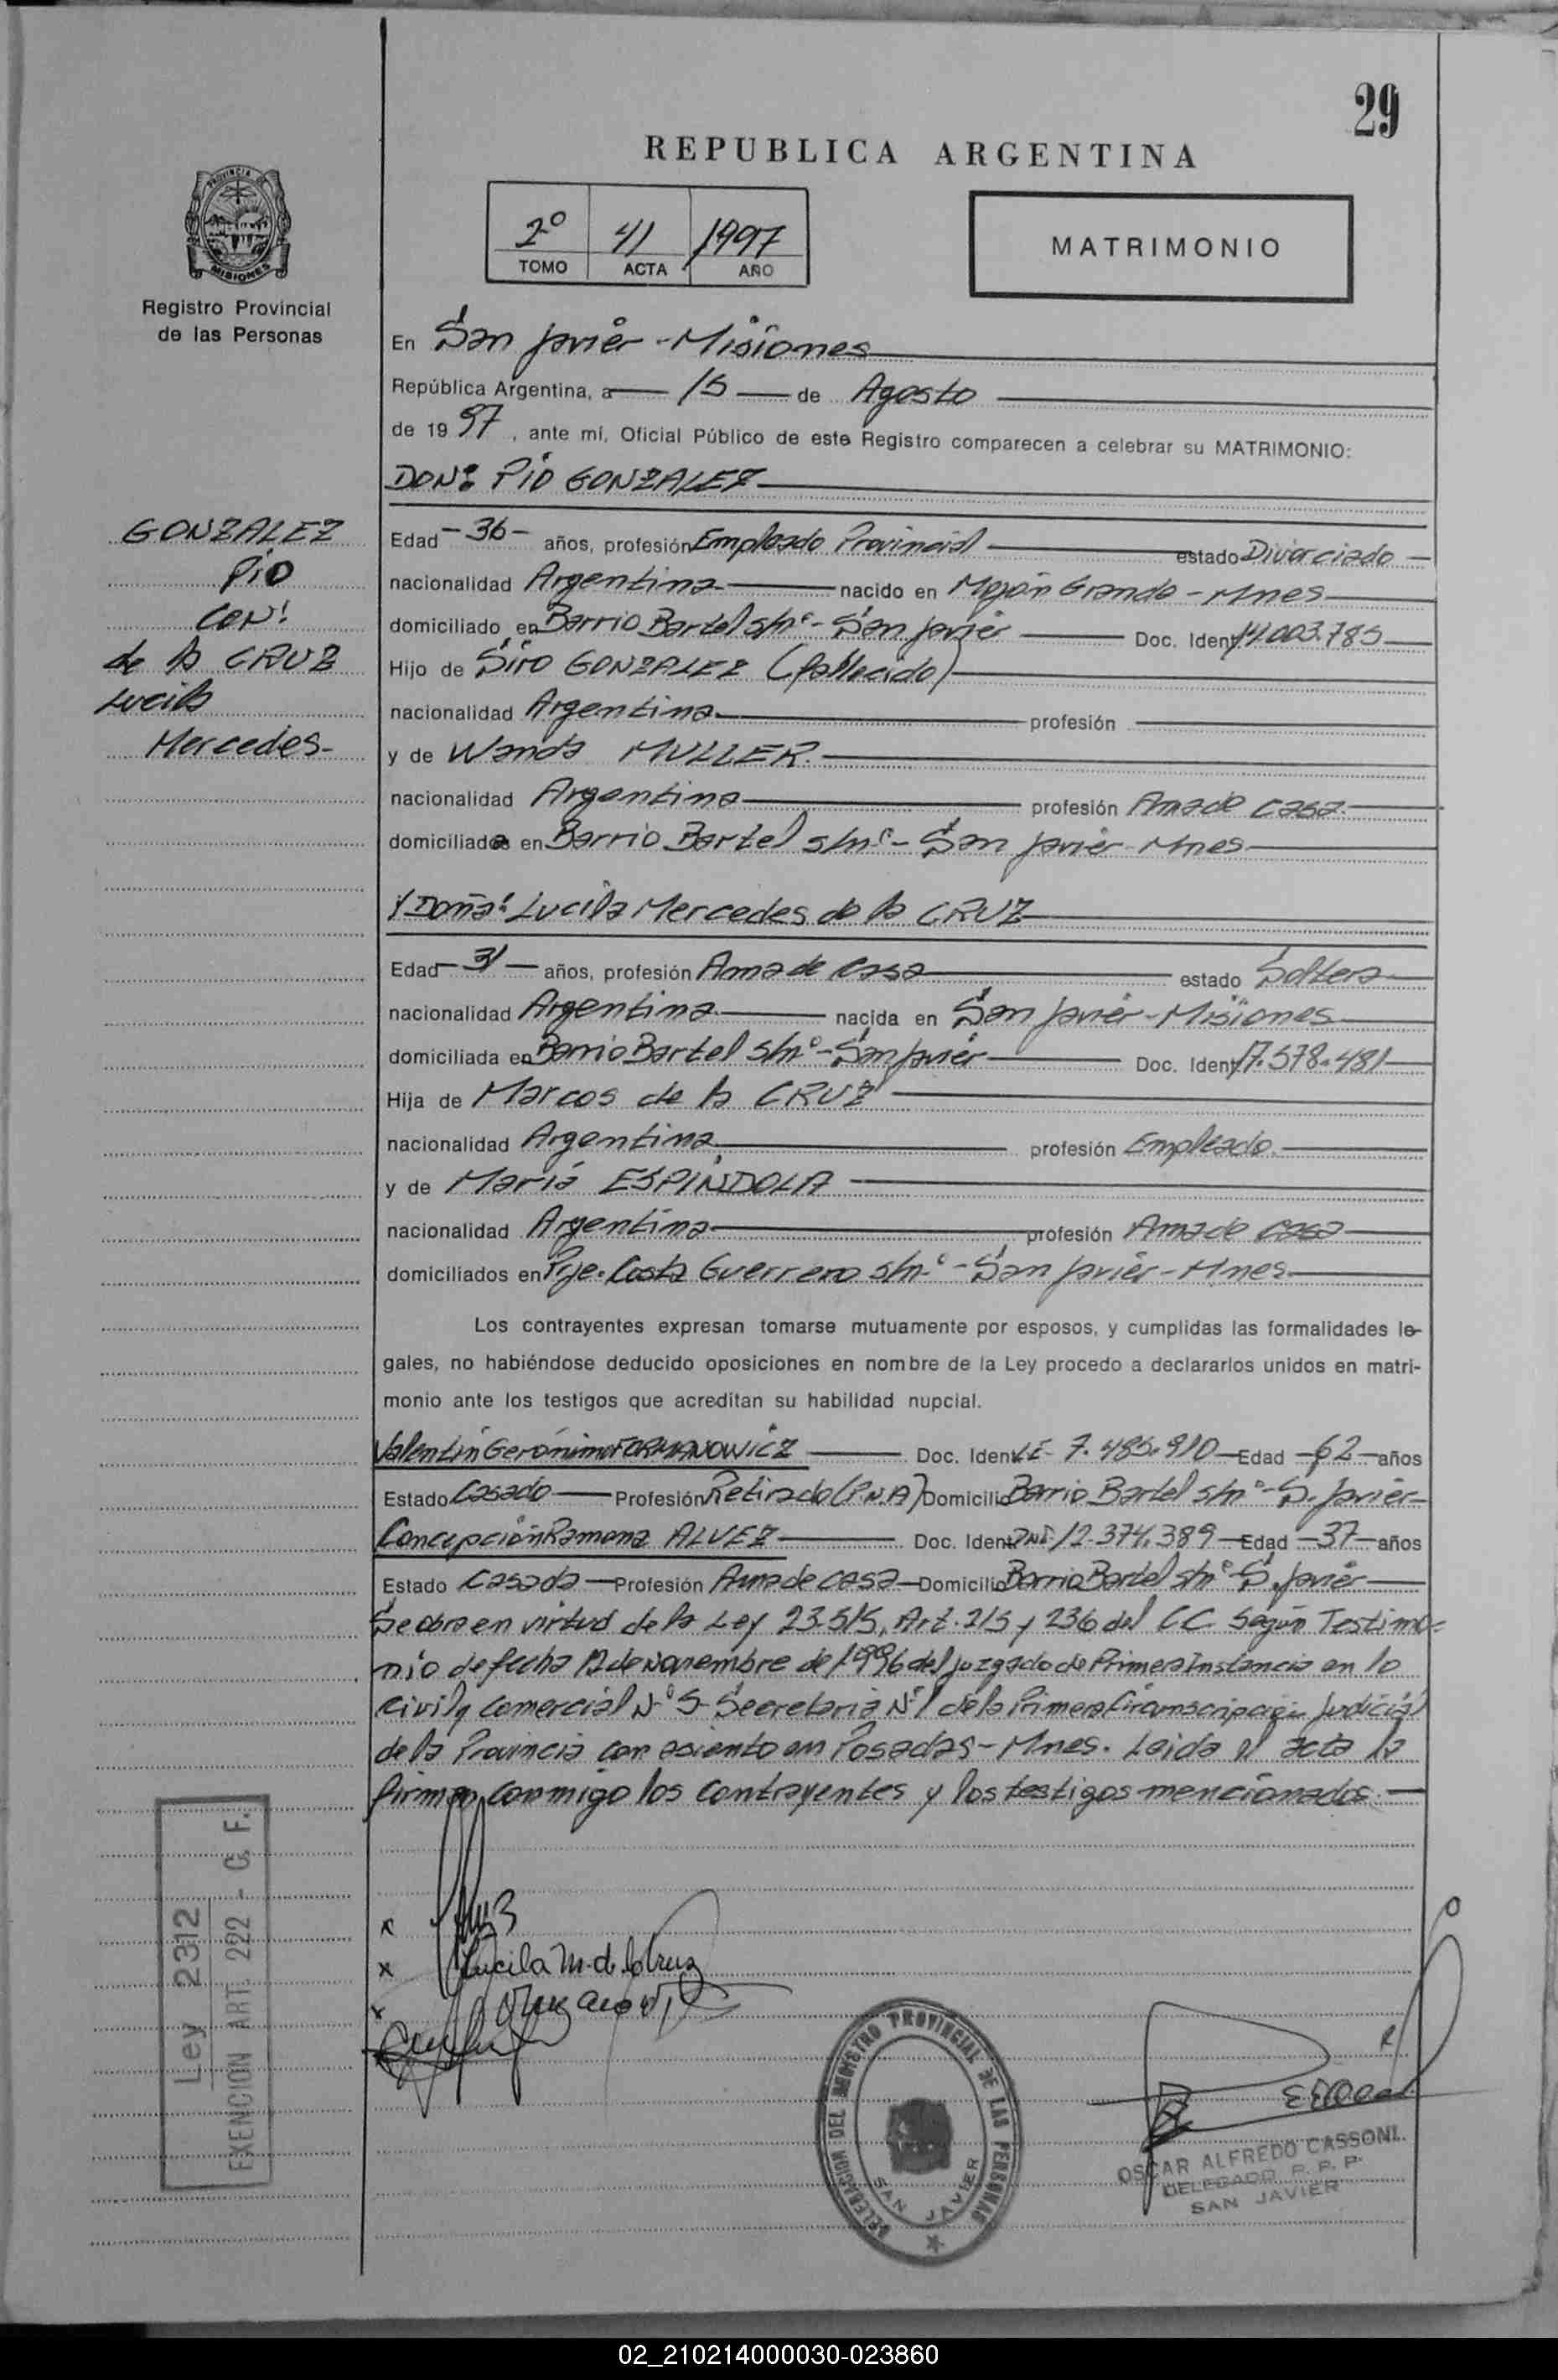 29
REPUBLICA ARGENTINA
2º 41 1997
TOMO ACTA AÑO
MATRIMONIO
PROVINCIA DE
MISIONES
Registro Provincial
de las Personas
En San Javier - Misiones
República Argentina, a 15 de Agosto
de 19 97, ante mí, Oficial Público de este Registro comparecen a celebrar su MATRIMONIO:
DON: PIO GONZALEZ
GONZALEZ
PIO
CON:
de la CRUZ
Lucila
Mercedes-
Edad - 36 - años, profesión Empleado Provincial estado Divorciado
nacionalidad Argentina nacido en Mojón Grande - Mnes
domiciliado en Barrio Bartel s/nº - San Javier Doc. Ident 14.003.785
Hijo de Siro GONZALEZ (fallecido)
nacionalidad Argentina profesión
y de Wanda MULLER.
nacionalidad Argentina profesión Ama de casa
domiciliada en Barrio Bartel s/nº - San Javier Mnes
Y Doña: Lucila Mercedes de la CRUZ
Edad 31 años, profesión Ama de casa estado Soltera
nacionalidad Argentina nacida en San Javier - Misiones
domiciliada en Barrio Bartel s/nº - San Javier Doc. Ident 17.578.481
Hija de Marcos de la CRUZ
nacionalidad Argentina profesión Empleado.
y de María ESPINDOLA
nacionalidad Argentina profesión Ama de casa
domiciliados en Pje. Costa Guerrero s/nº - San Javier - Mnes
Los contrayentes expresan tomarse mutuamente por esposos, y cumplidas las formalidades le-
gales, no habiéndose deducido oposiciones en nombre de la Ley procedo a declararlos unidos en matri-
monio ante los testigos que acreditan su habilidad nupcial.
Valentín Gerónimo FORMANOWICZ Doc. Ident LE 7.485.910 Edad 62 años
Estado Casado Profesión Retirado (P.N.A) Domicilio Barrio Bartel s/nº - S. Javier
Concepción Ramona ALVEZ Doc. Ident DNI 12.374.389 Edad 37 años
Estado Casada Profesión Ama de casa Domicilio Barrio Bartel s/nº S. Javier
Se obra en virtud de la Ley 23.515, Art. 215 y 236 del CC. Según Testimo-
nio de fecha 12 de Noviembre de 1996 del Juzgado de Primera Instancia en lo
Civil y Comercial Nº 5 Secretaria Nº 1 de la Primera Circunscripción Judicial
de la Provincia con asiento en Posadas - Mnes. Leida el acta la
firman conmigo los contrayentes y los testigos mencionados.
Ley 2312
EXENCION ART. 222 - C. F.
x
x Lucila M. de la Cruz
x
DELEGACION DEL REGISTRO PROVINCIAL DE LAS PERSONAS
SAN JAVIER
OSCAR ALFREDO CASSONI
DELEGADO R. P. P.
SAN JAVIER
02_210214000030-023860